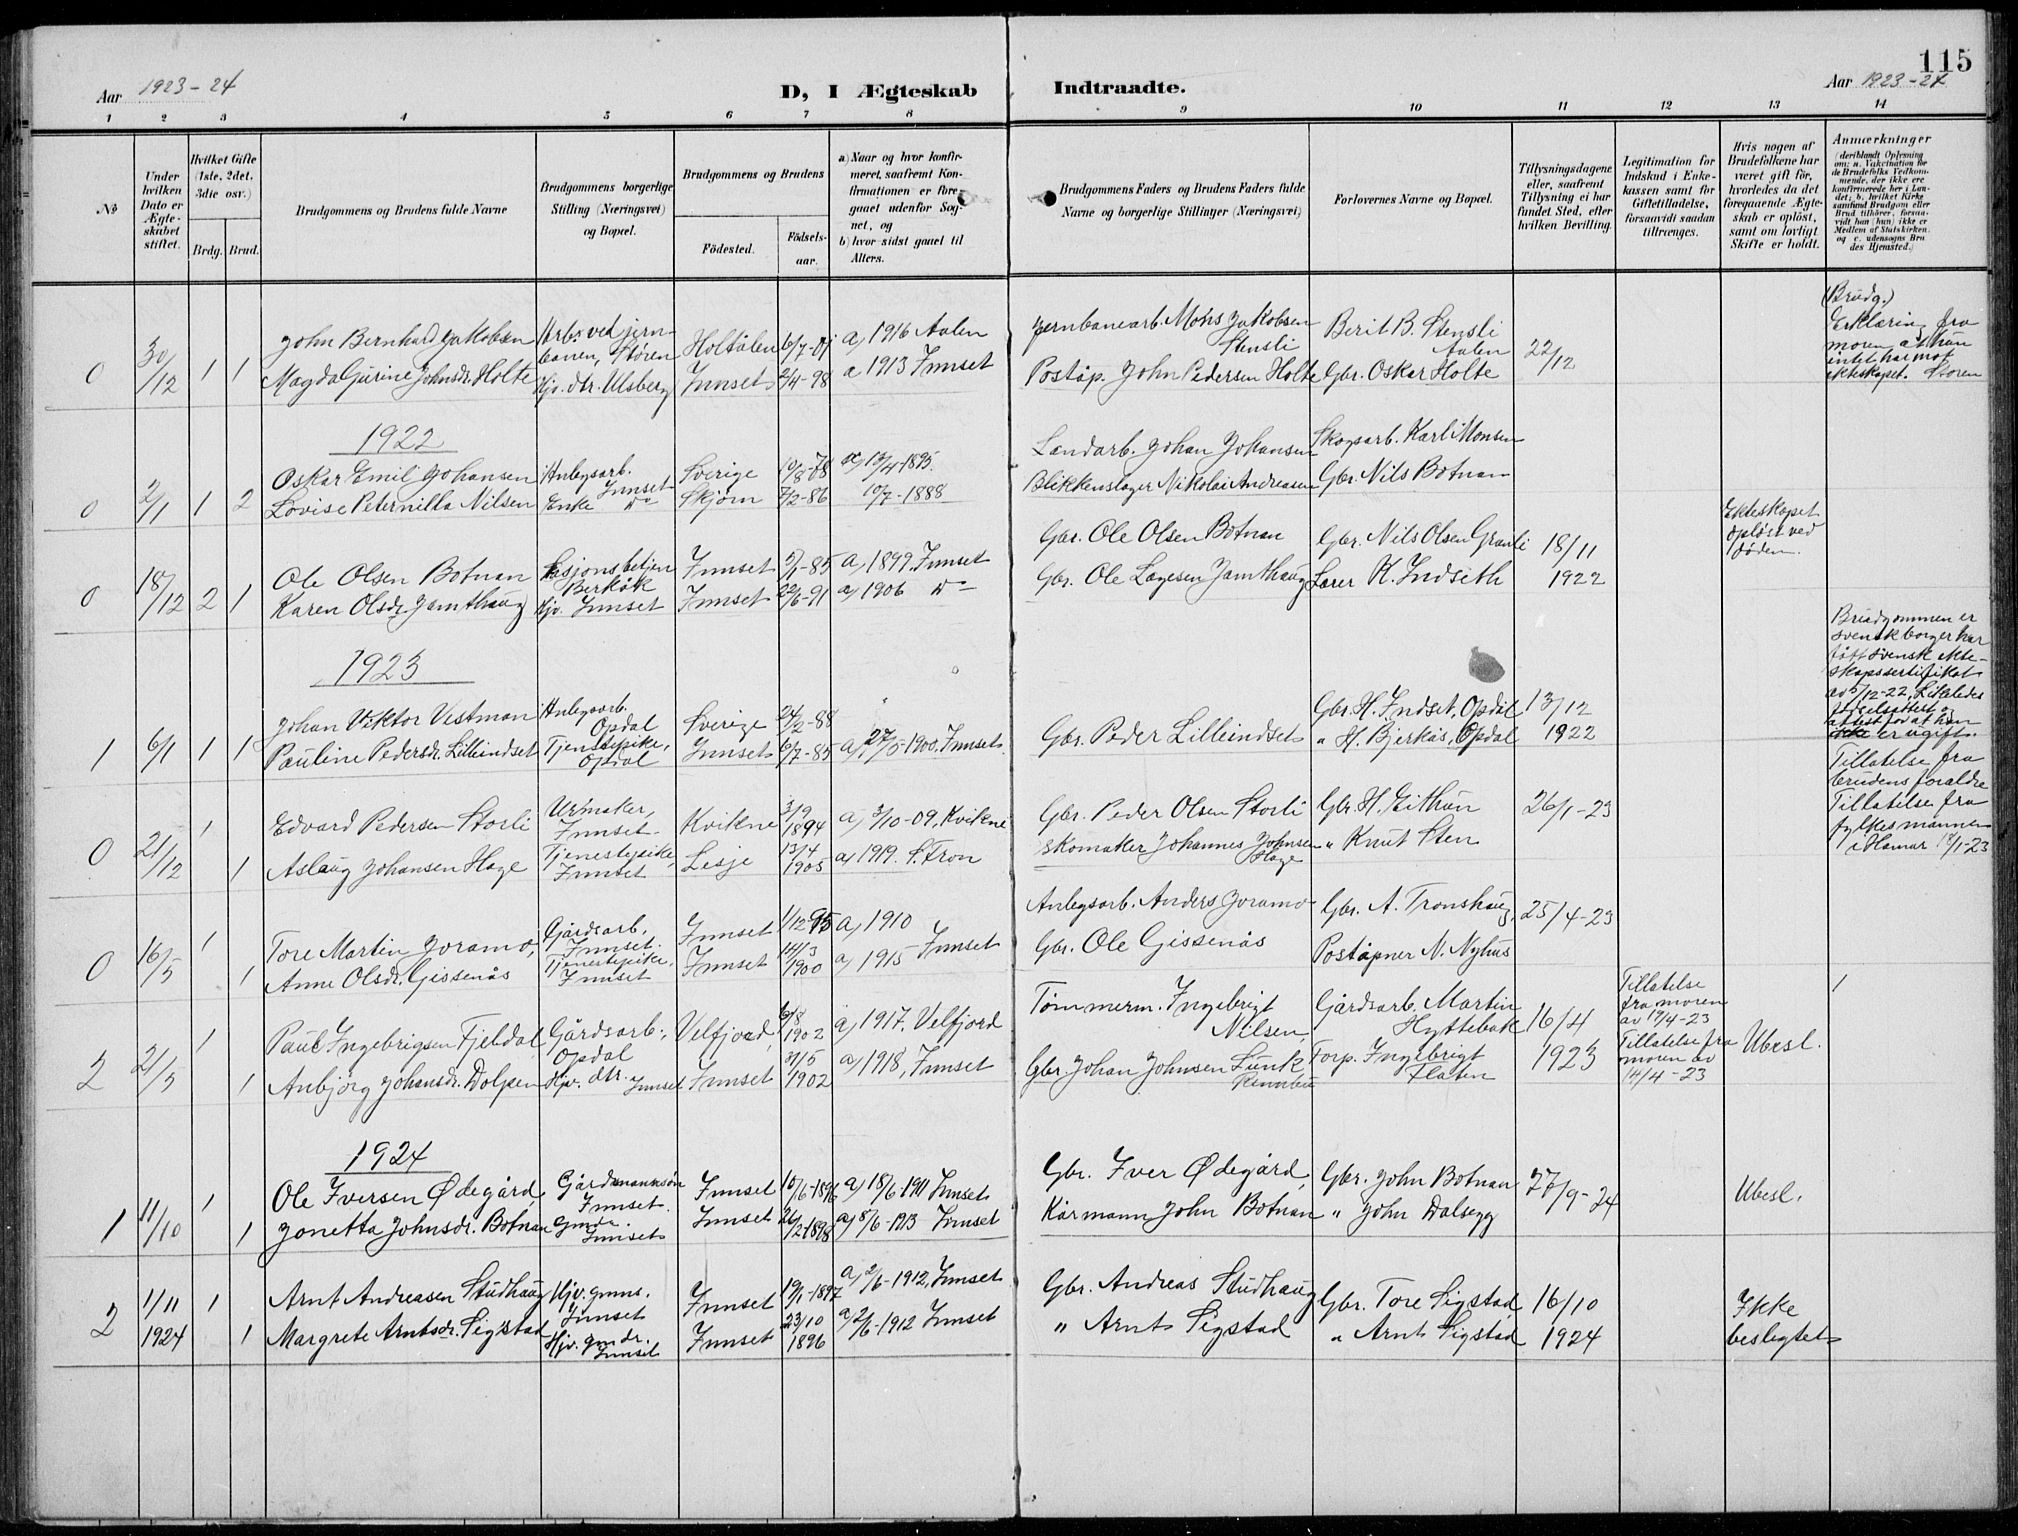 115
Aar 1923-24
D, I Ægteskab Indtraadte.
Aar 1923-24
1 2 3 4 5 6 7 8 9 10 11 12 13 14
No
Under hvilken Dato er Ægteskabet stiftet.
Hvilket Gifte (1ste, 2det, 3die osv.)
Brdg. Brud.
Brudgommens og Brudens fulde Navne
Brudgommens borgerlige Stilling (Næringsvei) og Bopæl.
Brudgommens og Brudens
Födested.
Födsels-aar.
a) Naar og hvor konfirmeret, saafremt Konfirmationen er foregaaet udenfor Sognet, og
b) hvor sidst gaaet til Alters.
Brudgommens Faders og Brudens Faders fulde Navne og borgerlige Stillinger (Næringsvei)
Forlovernes Navne og Bopæl.
Tillysningsdagene eller, saafremt Tillysning ei har fundet Sted, efter hvilken Bevilling.
Legitimation for Indskud i Enkekassen samt for Giftetilladelse, forsaavidt saadan tiltrænges.
Hvis nogen af Brudefolkene har været gift för, hvorledes da det foregaaende Ægteskab er oplöst, samt om lovligt Skifte er holdt.
Anmærkninger
(deriblandt Oplysning om: a. Vakcination for de Brudefolks Vedkommende, der ikke ere konfirmerede her i Landet; b. hvilket Kirkesamfund Brudgom eller Brud tilhörer, forsaavidt han (hun) ikke er Medlem af Statskirken, og c. udensogns Brudes Hjemsted.)
0 30/12 1 1
John Bernhard Jakobsen Arb. ved jernbanen, Støren Holtålen 6/7-01 a) 1916 Aalen Jernbanearb. Mons Jakobsen Stensli Berit B. Stensli Aalen 22/12
Magda Gurine Johnsdr. Holte Hjv. dtr. Ulsberg Innset 2/4-98 a 1913 Innset Poståp. John Pedersen Holte Gbr. Oskar Holte
(Brudg.) Erklæring fra moren at hun intet har mot ekteskapet. Støren
1922
0 2/1 1 2
Oskar Emil Johansen Anlegsarb. Innset Sverige 10/8-78 13/4-1895. Landarb. Johan Johansen Skogsarb. Karl Monsen
Lovise Peternilla Nilsen Enke do Skjørn 7/2-86 10/7-1888 Blikkenslager Nikolai Andreasen Gbr. Nils Botnan
0 18/12 2 1
Ole Olsen Botnan Berkåk Innset 5/1-85 a) 1899. Innset Gbr. Ole Olsen Botnan Gbr. Nils Olsen Granli 18/11 1922
Karen Olsdr. Jamthaug Hjv. Innset Innset 22/6-91 a) 1906 do Gbr. Ole Lagesen Jamthaug Lærer K. Indseth
Ekteskapet opløst ved døden.
1923
1 6/1 1 1
Johan Viktor Vestman Anlegsarb. Opdal Sverige 24/2-88 Gbr. H. Indset, Opdal 13/12 1922
Pauline Pedersdr. Lilleindset Tjenestepike, Opdal Innset 6/7-85 a) 27/5-1900. Innset. Gbr. Peder Lilleindset " H. Bjerkås, Opdal
Brudgommen er svensk borger har fått svensk ekteskapssertifikat av 5/12-22, Likeledes fødselsattest og attest for at han ikke er ugift.
0 21/12 1 1
Edvard Pedersen Storli Urmaker, Innset Kvikne 3/9 1894 a) 3/10-09, Kvikne Gbr. Peder Olsen Storli Gbr. H. Eithun 26/1-23
Aslaug Johansen Hage Tjenestepike, Innset Lesje 13/4 1905 a) 1919. S. Fron skomaker Johannes Johnsen Hage " Knut Sten
Tillatelse fra brudens foraldre Tillatelse fra fylkesmannen i Hamar 18/1-23
0 16/5 1 1
Tore Martin Joramo, Gårdsarb. Innset. Innset 1/12 95 a) 1910 Anlegsarb. Anders Joramo Gbr. A. Tronshaug 25/4-23
Anne Olsdr. Gissenås Tjenestepike, Innset Innset 14/3 1900 a) 1915 Innset Gbr. Ole Gissenås Poståpner N. Nyhus
2 21/5 1 1
Paul Ingebrigsen Fjeldal Gårdsarb., Opdal Velfjord 6/8 1902 a) 1917. Velfjord Tømmerm. Ingebrigt Nilsen, Gårdsarb. Martin Hyttebak 16/4 1923
Anbjørg Johansdr. Dolpen Hjv. dtr. Innset Innset 31/5 1902 a) 1918, Innset Gbr. Johan Johnsen Lunk Rennebu Torp. Ingebrigt Flaten
Tillatelse fra moren av 19/4-23
Tillatelse fra moren av 14/4-23
Ubesl.
1
1924
1 11/10 1 1
Ole Iversen Ødegård Gårdmannsøn Innset. Innset 10/6-1896 a) 18/6-1911 Innset Gbr. Iver Ødegård, Gbr. John Botnan 27/9-24
Jonetta Johnsdr. Botnan Gmdr. Innset Innset 26/2 1898 a) 8/6-1913 Innset Kårmann John Botnan " John Dalsegg
Ubesl.
2 1/11 1924 1 1
Arnt Andreasen Studhaug Hjv. gmns. Innset Innset 19/1-1897 a) 2/6-1912, Innset Gbr. Andreas Studhaug Gbr. Tore Sigstad 16/10 1924
Margrete Arntsdr. Sigstad Hjv. gmdr. Innset Innset 23/10 1896 a) 2/6-1912 Innset " Arnt Sigstad " Arnt Sigstad
Ikke beslegtet